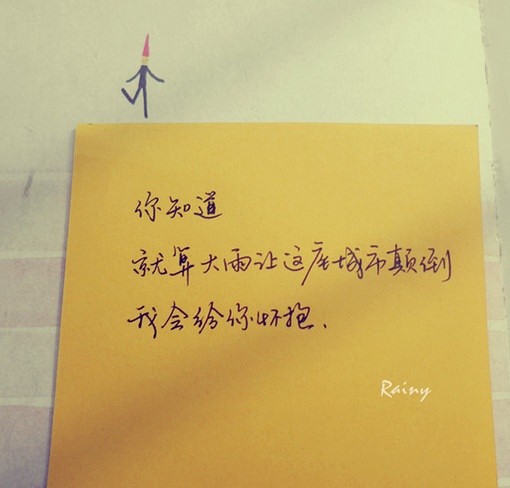 你知道
就算大雨让这座城市颠倒
我会给你怀抱、
Rainy